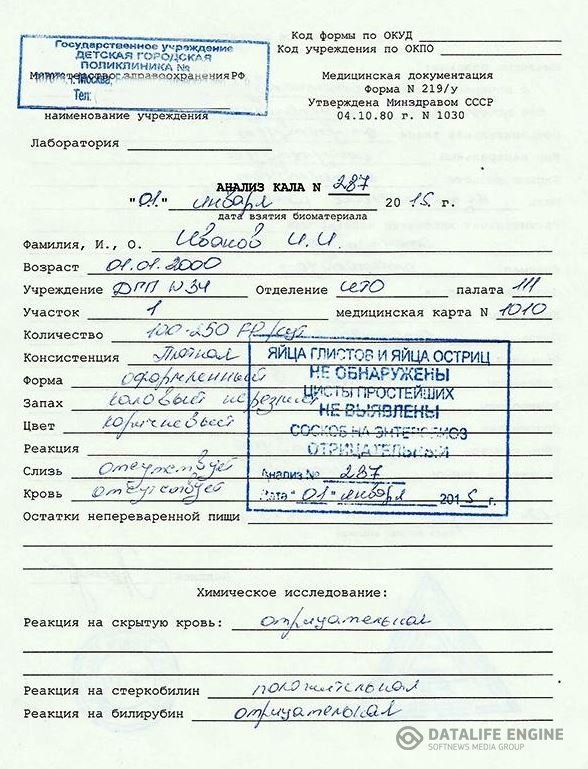 Код формы по ОКУД
Код учреждения по ОКПО
Государственное учреждение
ДЕТСКАЯ ГОРОДСКАЯ
ПОЛИКЛИНИКА №
г. Москва,
Тел:
Министерство здравоохранения РФ
наименование учреждения
Лаборатория
Медицинская документация
Форма N 219/у
Утверждена Минздравом СССР
04.10.80 г. N 1030
АНАЛИЗ КАЛА N 287
"01" января 2015 г.
дата взятия биоматериала
Фамилия, И., О. Иванов И.И.
Возраст 01.01.2000
Учреждение ДГП №34 Отделение палата 111
Участок 1 медицинская карта N 1010
Количество 100-250 гр/сут
Консистенция Плотная
Форма оформленный
Запах каловый нерезкий
Цвет коричневый
Реакция
Слизь отсутствует
Кровь отсутствует
Остатки непереваренной пищи
ЯЙЦА ГЛИСТОВ И ЯЙЦА ОСТРИЦ
НЕ ОБНАРУЖЕНЫ
ЦИСТЫ ПРОСТЕЙШИХ
НЕ ВЫЯВЛЕНЫ
СОСКОБ НА ЭНТЕРОБИОЗ
ОТРИЦАТЕЛЬНЫЙ
Анализ № 287
Дата "01" января 2015 г.
Химическое исследование:
Реакция на скрытую кровь: отрицательная
Реакция на стеркобилин положительная
Реакция на билирубин отрицательная
DATALIFE ENGINE
SOFTNEWS MEDIA GROUP